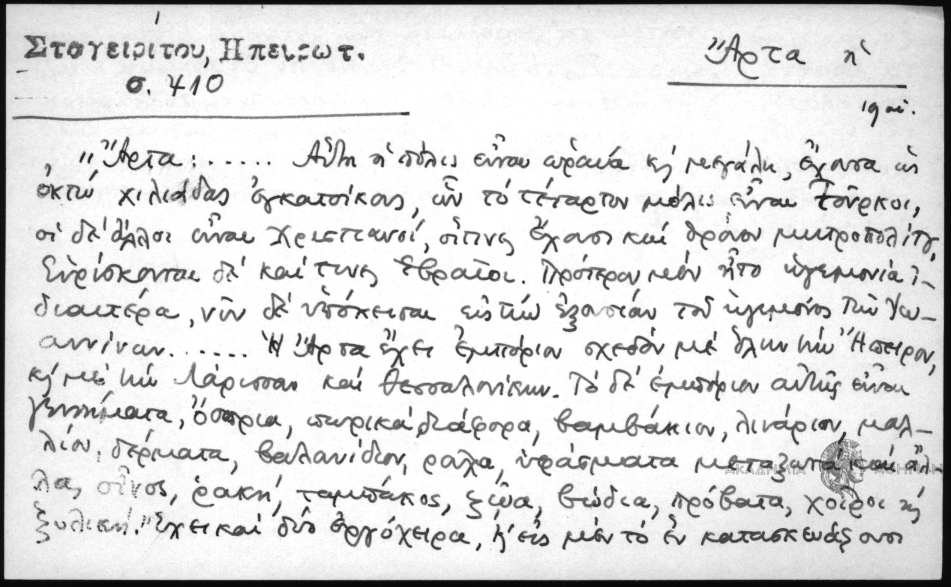 Σταγειρίτου, Ηπειρωτ.
σ. 410
Ἄρτα ἡ
19 αἰ.
"Ἄρτα: ..... Αὕτη ἡ πόλις εἶναι ὡραία κ̀ μεγάλη, ἔχουσα ὡς
ὀκτὼ χιλιάδας ἐγκατοίκους, ὧν τὸ τέταρτον μόλις εἶναι Τοῦρκοι,
οἱ δὲ ἄλλοι εἶναι Χριστιανοί, οἵτινες ἔχουσι καὶ θρόνον μητροπολίτου,
Εὑρίσκονται δὲ καί τινες Ἑβραῖοι. Πρότερον μὲν ἦτο ἡγεμονία ἰ-
διαιτέρα, νῦν δὲ ὑπόκειται εἰς τὴν ἐξουσίαν τοῦ ἡγεμόνος τῶν Ἰω-
αννίνων...... Ἡ Ἄρτα ἔχει ἐμπόριον σχεδὸν μὲ ὅλην τὴν Ἤπειρον,
κ̀ μὲ τὴν Λάρισσαν καὶ Θεσσαλονίκην. Τὸ δὲ ἐμπόριον αὐτῆς εἶναι
γεννήματα, ὄσπρια, πωρικὰ διάφορα, βαμβάκιον, λινάριον, μαλ-
λίον, δέρματα, βαλανίδιον, ροῦχα, ὑφάσματα μεταξωτὰ καὶ ἄλ-
λα, οἶνος, ῥακή, ταμπάκος, ζῶα, βώδια, πρόβατα, χοῖροι κ̀
ξυλική. Ἔχει καὶ δύο ἐργόχειρα, κ̀ εἰς μὲν τὸ ἓν κατασκευάζουσι
ΑΚΑΔΗΜΙΑ ΑΘΗΝΩΝ